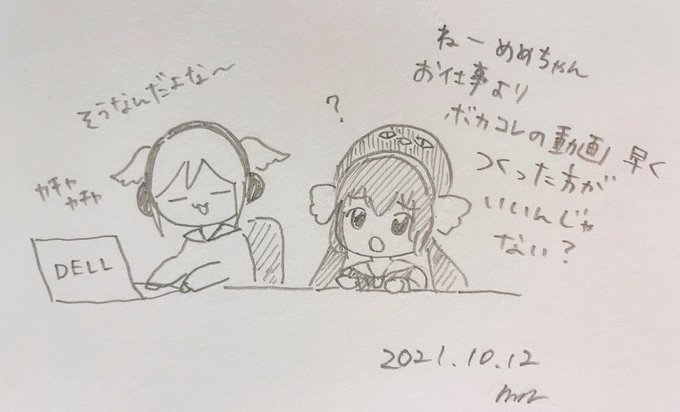 ねーめめちゃん
お仕事より
ボカコレの動画 早く
つくった方が
いいんじゃ
ない?
?
そうなんだよな〜
カチャ
カチャ
DELL
2021.10.12